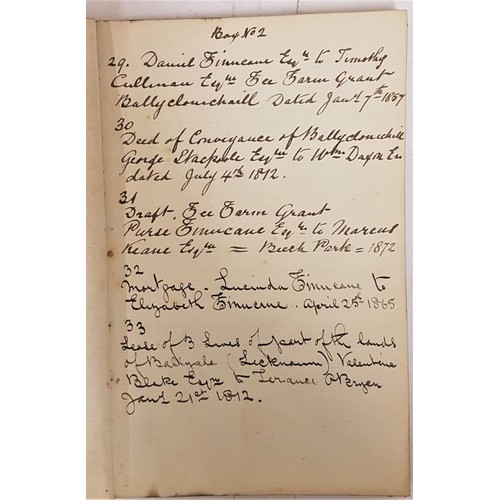 Box No 2
29. Daniel Finucane Esqre to Timothy
Cullinan Esqre Fee Farm Grant
Ballyclouchaill Dated Jany 7th 1857
30
Deed of Conveyance of
George Stackpole Esqre to Wm Esq
dated July 4th 1812.
31
Draft. Fee Farm Grant
Purse Finucane Esqre to Marcus
Keane Esqre = Beech Park = 1872
32
Mortgage. Lucinda Finucane to
Elizabeth Finucane. April 25th 1865
33
Lease of 3 Lives of part of the lands
of Ballyala (Licknaun) Valentine
Blake Esqre to Terance O'Bryen
Jany 21st 1812.